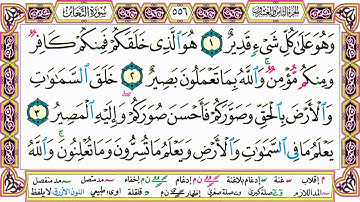 سورة التغابن ٥٥٦ الجزء الثامن والعشرون
وَهُوَ عَلَىٰ كُلِّ شَيْءٍ قَدِيرٌ ١ هُوَ الَّذِي خَلَقَكُمْ فَمِنكُمْ كَافِرٌ
وَمِنكُم مُّؤْمِنٌ ۚ وَاللَّهُ بِمَا تَعْمَلُونَ بَصِيرٌ ٢ خَلَقَ السَّمَاوَاتِ
وَالْأَرْضَ بِالْحَقِّ وَصَوَّرَكُمْ فَأَحْسَنَ صُوَرَكُمْ ۖ وَإِلَيْهِ الْمَصِيرُ ٣
يَعْلَمُ مَا فِي السَّمَاوَاتِ وَالْأَرْضِ وَيَعْلَمُ مَا تُسِرُّونَ وَمَا تُعْلِنُونَ ۚ وَاللَّهُ